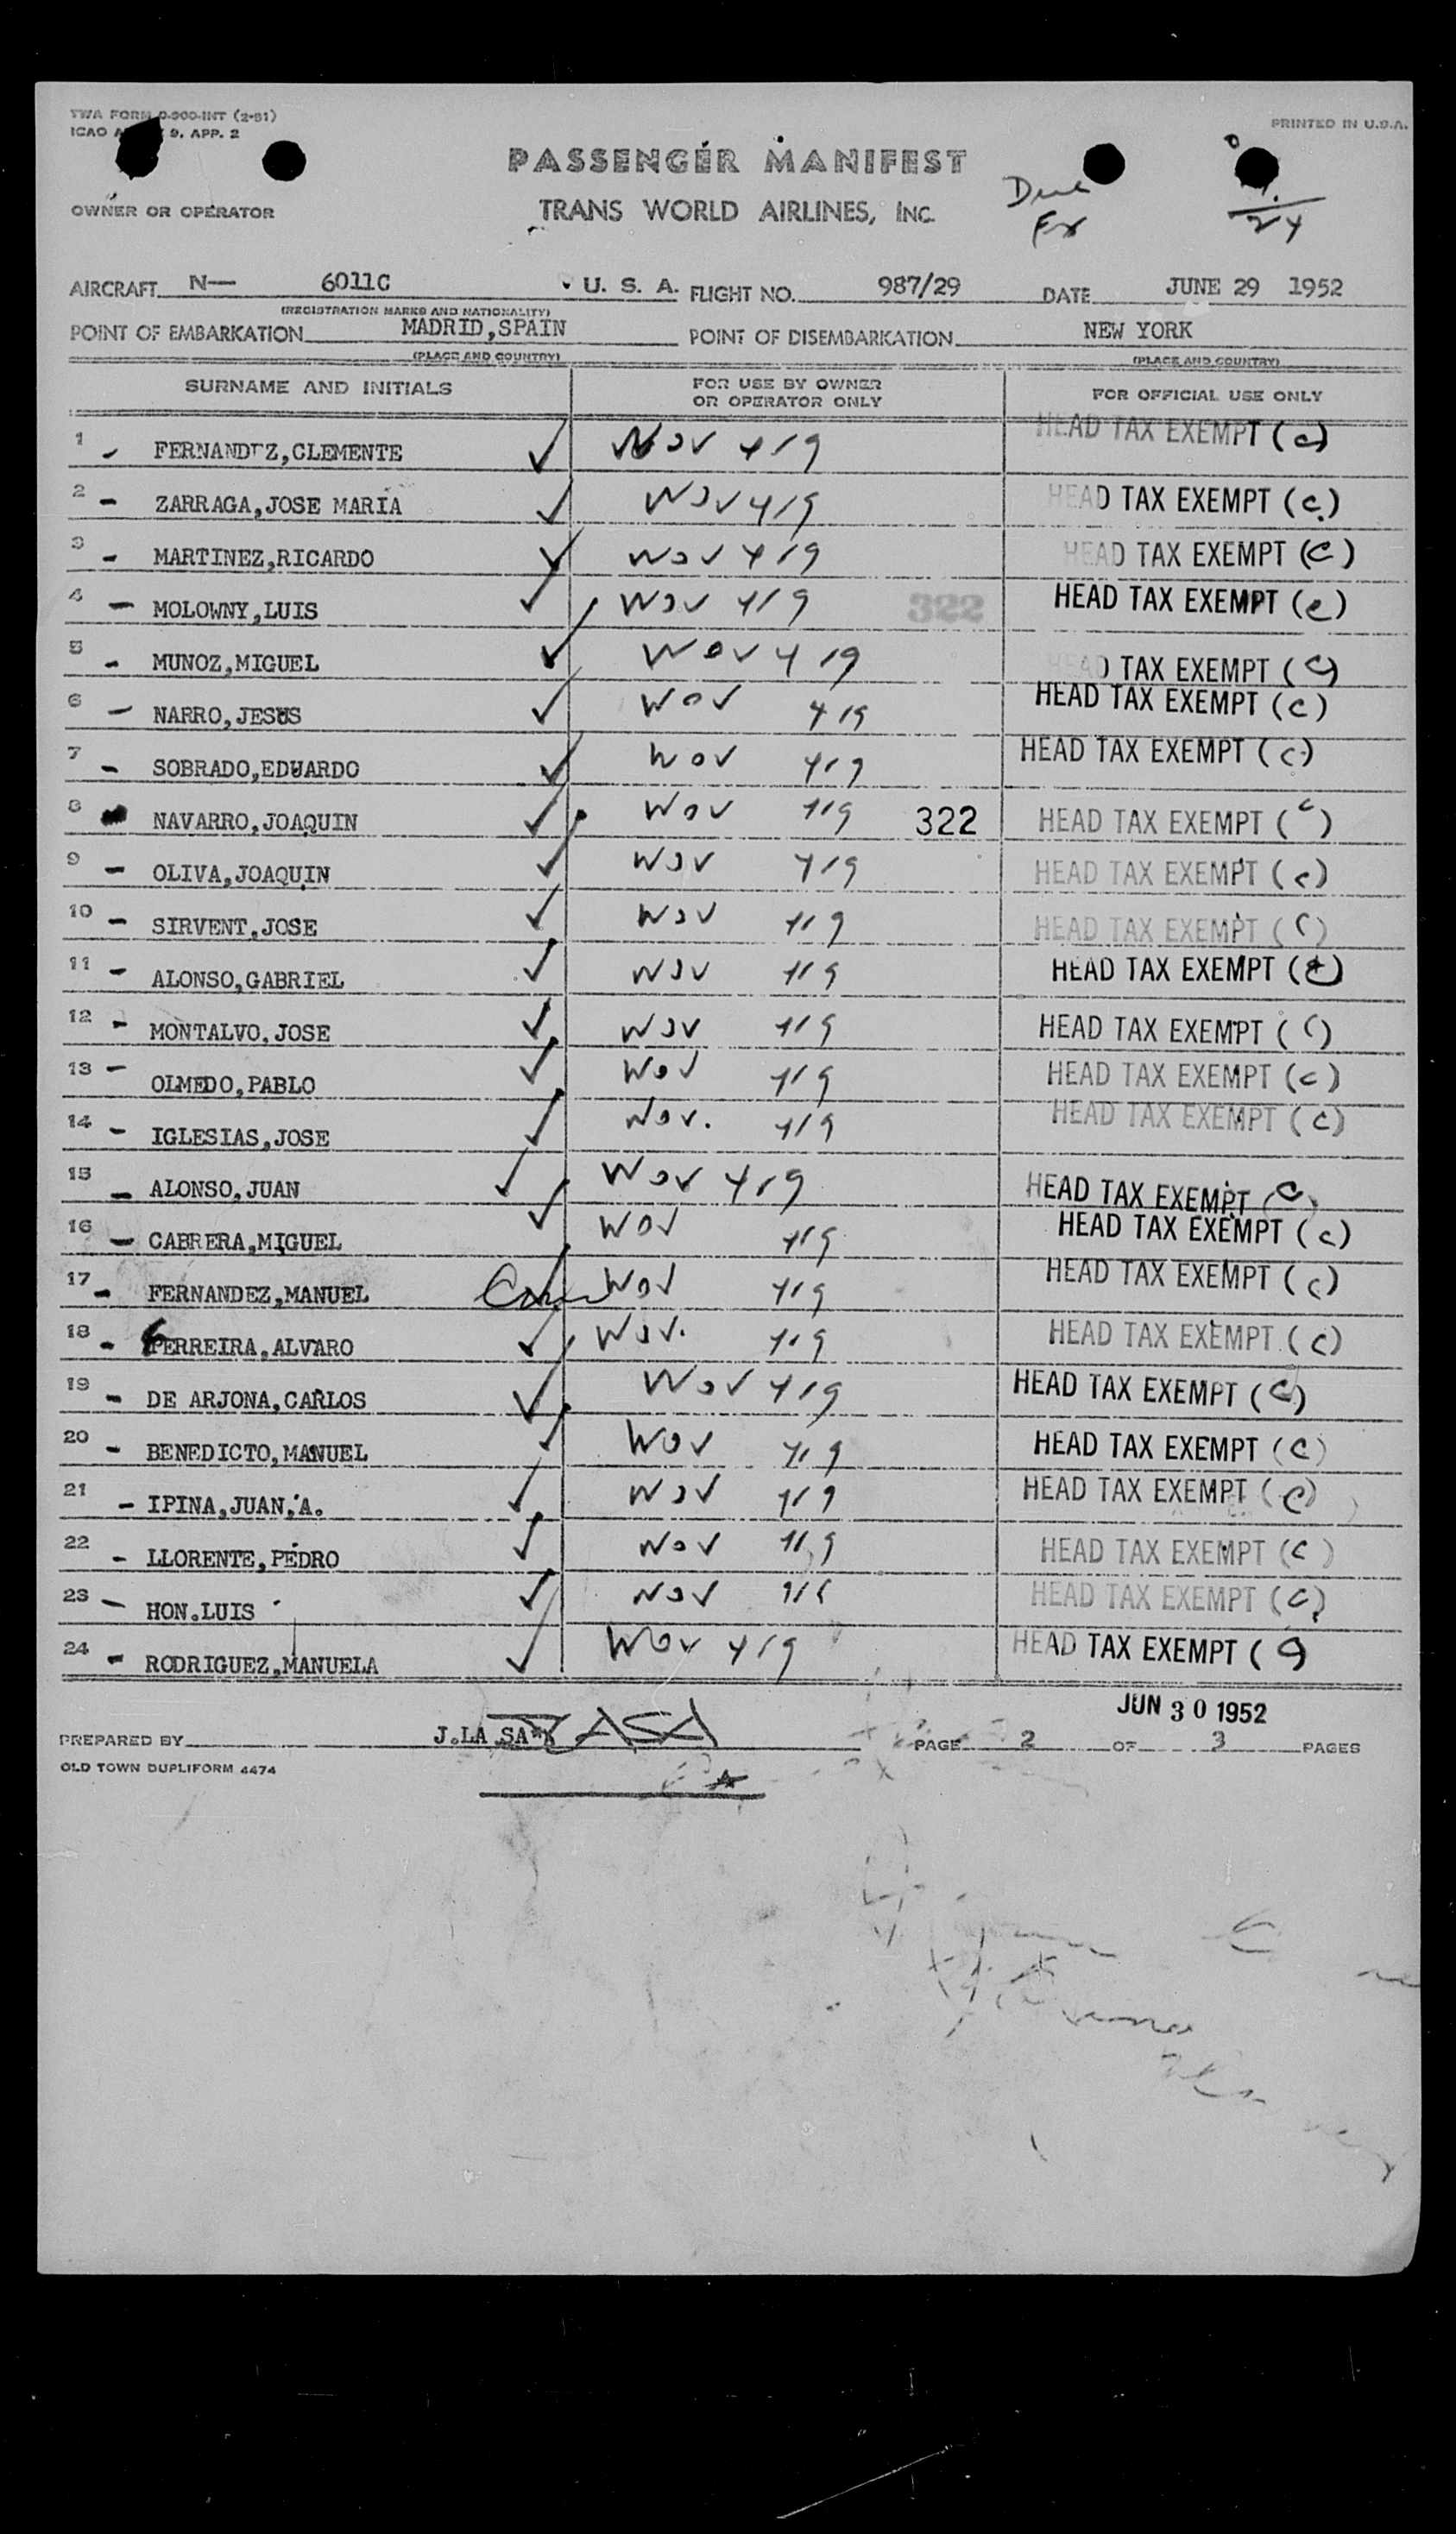 TWA FORM 0-900-INT (2-51)
ICAO 9, APP. 2
PRINTED IN U.S.A.
PASSENGER MANIFEST
OWNER OR OPERATOR TRANS WORLD AIRLINES, INC.
24
AIRCRAFT N— 6011C U. S. A. FLIGHT NO. 987/29 DATE JUNE 29 1952
(REGISTRATION MARKS AND NATIONALITY)
POINT OF EMBARKATION MADRID,SPAIN POINT OF DISEMBARKATION NEW YORK
(PLACE AND COUNTRY) (PLACE AND COUNTRY)
SURNAME AND INITIALS FOR USE BY OWNER OR OPERATOR ONLY FOR OFFICIAL USE ONLY
1 - FERNANDEZ,CLEMENTE ✓ Nov 419 HEAD TAX EXEMPT (c)
2 - ZARRAGA,JOSE MARIA ✓ Nov 419 HEAD TAX EXEMPT (c)
3 - MARTINEZ,RICARDO ✓ Nov 419 HEAD TAX EXEMPT (c)
4 - MOLOWNY,LUIS ✓ Nov 419 322 HEAD TAX EXEMPT (c)
5 - MUNOZ,MIGUEL ✓ Nov 419 HEAD TAX EXEMPT (c)
6 - NARRO,JESUS ✓ Nov 419 HEAD TAX EXEMPT (c)
7 - SOBRADO,EDUARDO ✓ Nov 419 HEAD TAX EXEMPT (c)
8 NAVARRO,JOAQUIN ✓ Nov 419 322 HEAD TAX EXEMPT (c)
9 - OLIVA,JOAQUIN ✓ Nov 419 HEAD TAX EXEMPT (c)
10 - SIRVENT,JOSE ✓ Nov 419 HEAD TAX EXEMPT (c)
11 - ALONSO,GABRIEL ✓ Nov 419 HEAD TAX EXEMPT (c)
12 - MONTALVO,JOSE ✓ Nov 419 HEAD TAX EXEMPT (c)
13 - OLMEDO,PABLO ✓ Nov 419 HEAD TAX EXEMPT (c)
14 - IGLESIAS,JOSE ✓ Nov. 419 HEAD TAX EXEMPT (c)
15 - ALONSO,JUAN ✓ Nov 419 HEAD TAX EXEMPT (c)
16 - CABRERA,MIGUEL ✓ Nov 419 HEAD TAX EXEMPT (c)
17 - FERNANDEZ,MANUEL Nov 419 HEAD TAX EXEMPT (c)
18 - FERREIRA,ALVARO ✓ Nov. 419 HEAD TAX EXEMPT (c)
19 - DE ARJONA,CARLOS ✓ Nov 419 HEAD TAX EXEMPT (c)
20 - BENEDICTO,MANUEL ✓ Nov 419 HEAD TAX EXEMPT (c)
21 - IPINA,JUAN,A. ✓ Nov 419 HEAD TAX EXEMPT (c)
22 - LLORENTE,PEDRO ✓ Nov 419 HEAD TAX EXEMPT (c)
23 - HON.LUIS ✓ Nov 419 HEAD TAX EXEMPT (c)
24 - RODRIGUEZ,MANUELA ✓ Nov 419 HEAD TAX EXEMPT (c)
JUN 30 1952
PREPARED BY J.LA SA PAGE 2 OF 3 PAGES
OLD TOWN DUPLIFORM 4474